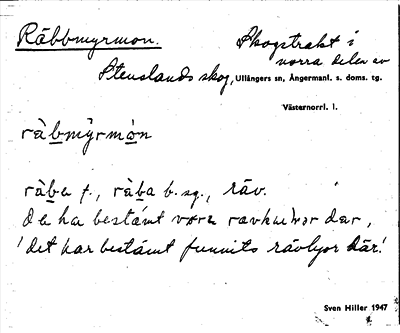 Råbbmyrmon.
Skogstrakt i
norra delen av
Stenslands skog, Ullångers sn, Ångermanl. s. doms. tg.
Västernorrl. l.
råbmyrmon
råba f., råba b. sg., räv.
de ha bestämt vore där,
'det har bestämt funnits rävlyor där!
Sven Hiller 1947